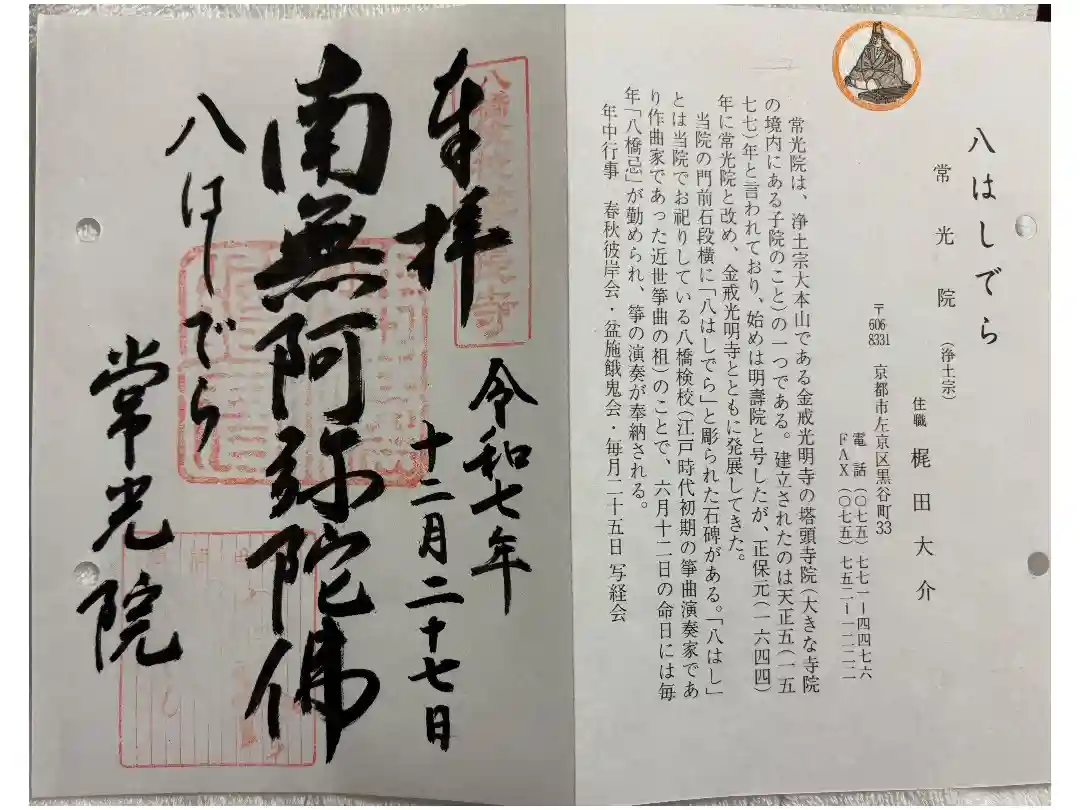 八はしでら
常光院(浄土宗)
住職 梶田大介
〒606-8331 京都市左京区黒谷町33
電話(〇七五)七七一ー四四七六
FAX(〇七五)七五二ー一二一二
常光院は、浄土宗大本山である金戒光明寺の塔頭寺院(大きな寺院
の境内にある子院のこと)の一つである。建立されたのは天正五(一五
七七)年と言われており、始めは明壽院と号したが、正保元(一六四四)
年に常光院と改め、金戒光明寺とともに発展してきた。
当院の門前石段横に「八はしでら」と彫られた石碑がある。「八はし」
とは当院でお祀りしている八橋検校(江戸時代初期の箏曲演奏家であ
り作曲家であった近世箏曲の祖)のことで、六月十二日の命日には毎
年「八橋忌」が勤められ、箏の演奏が奉納される。
年中行事 春秋彼岸会・盆施餓鬼会・毎月二十五日写経会
奉拝
令和七年
十二月二十七日
南無阿弥陀佛
八はしでら
常光院